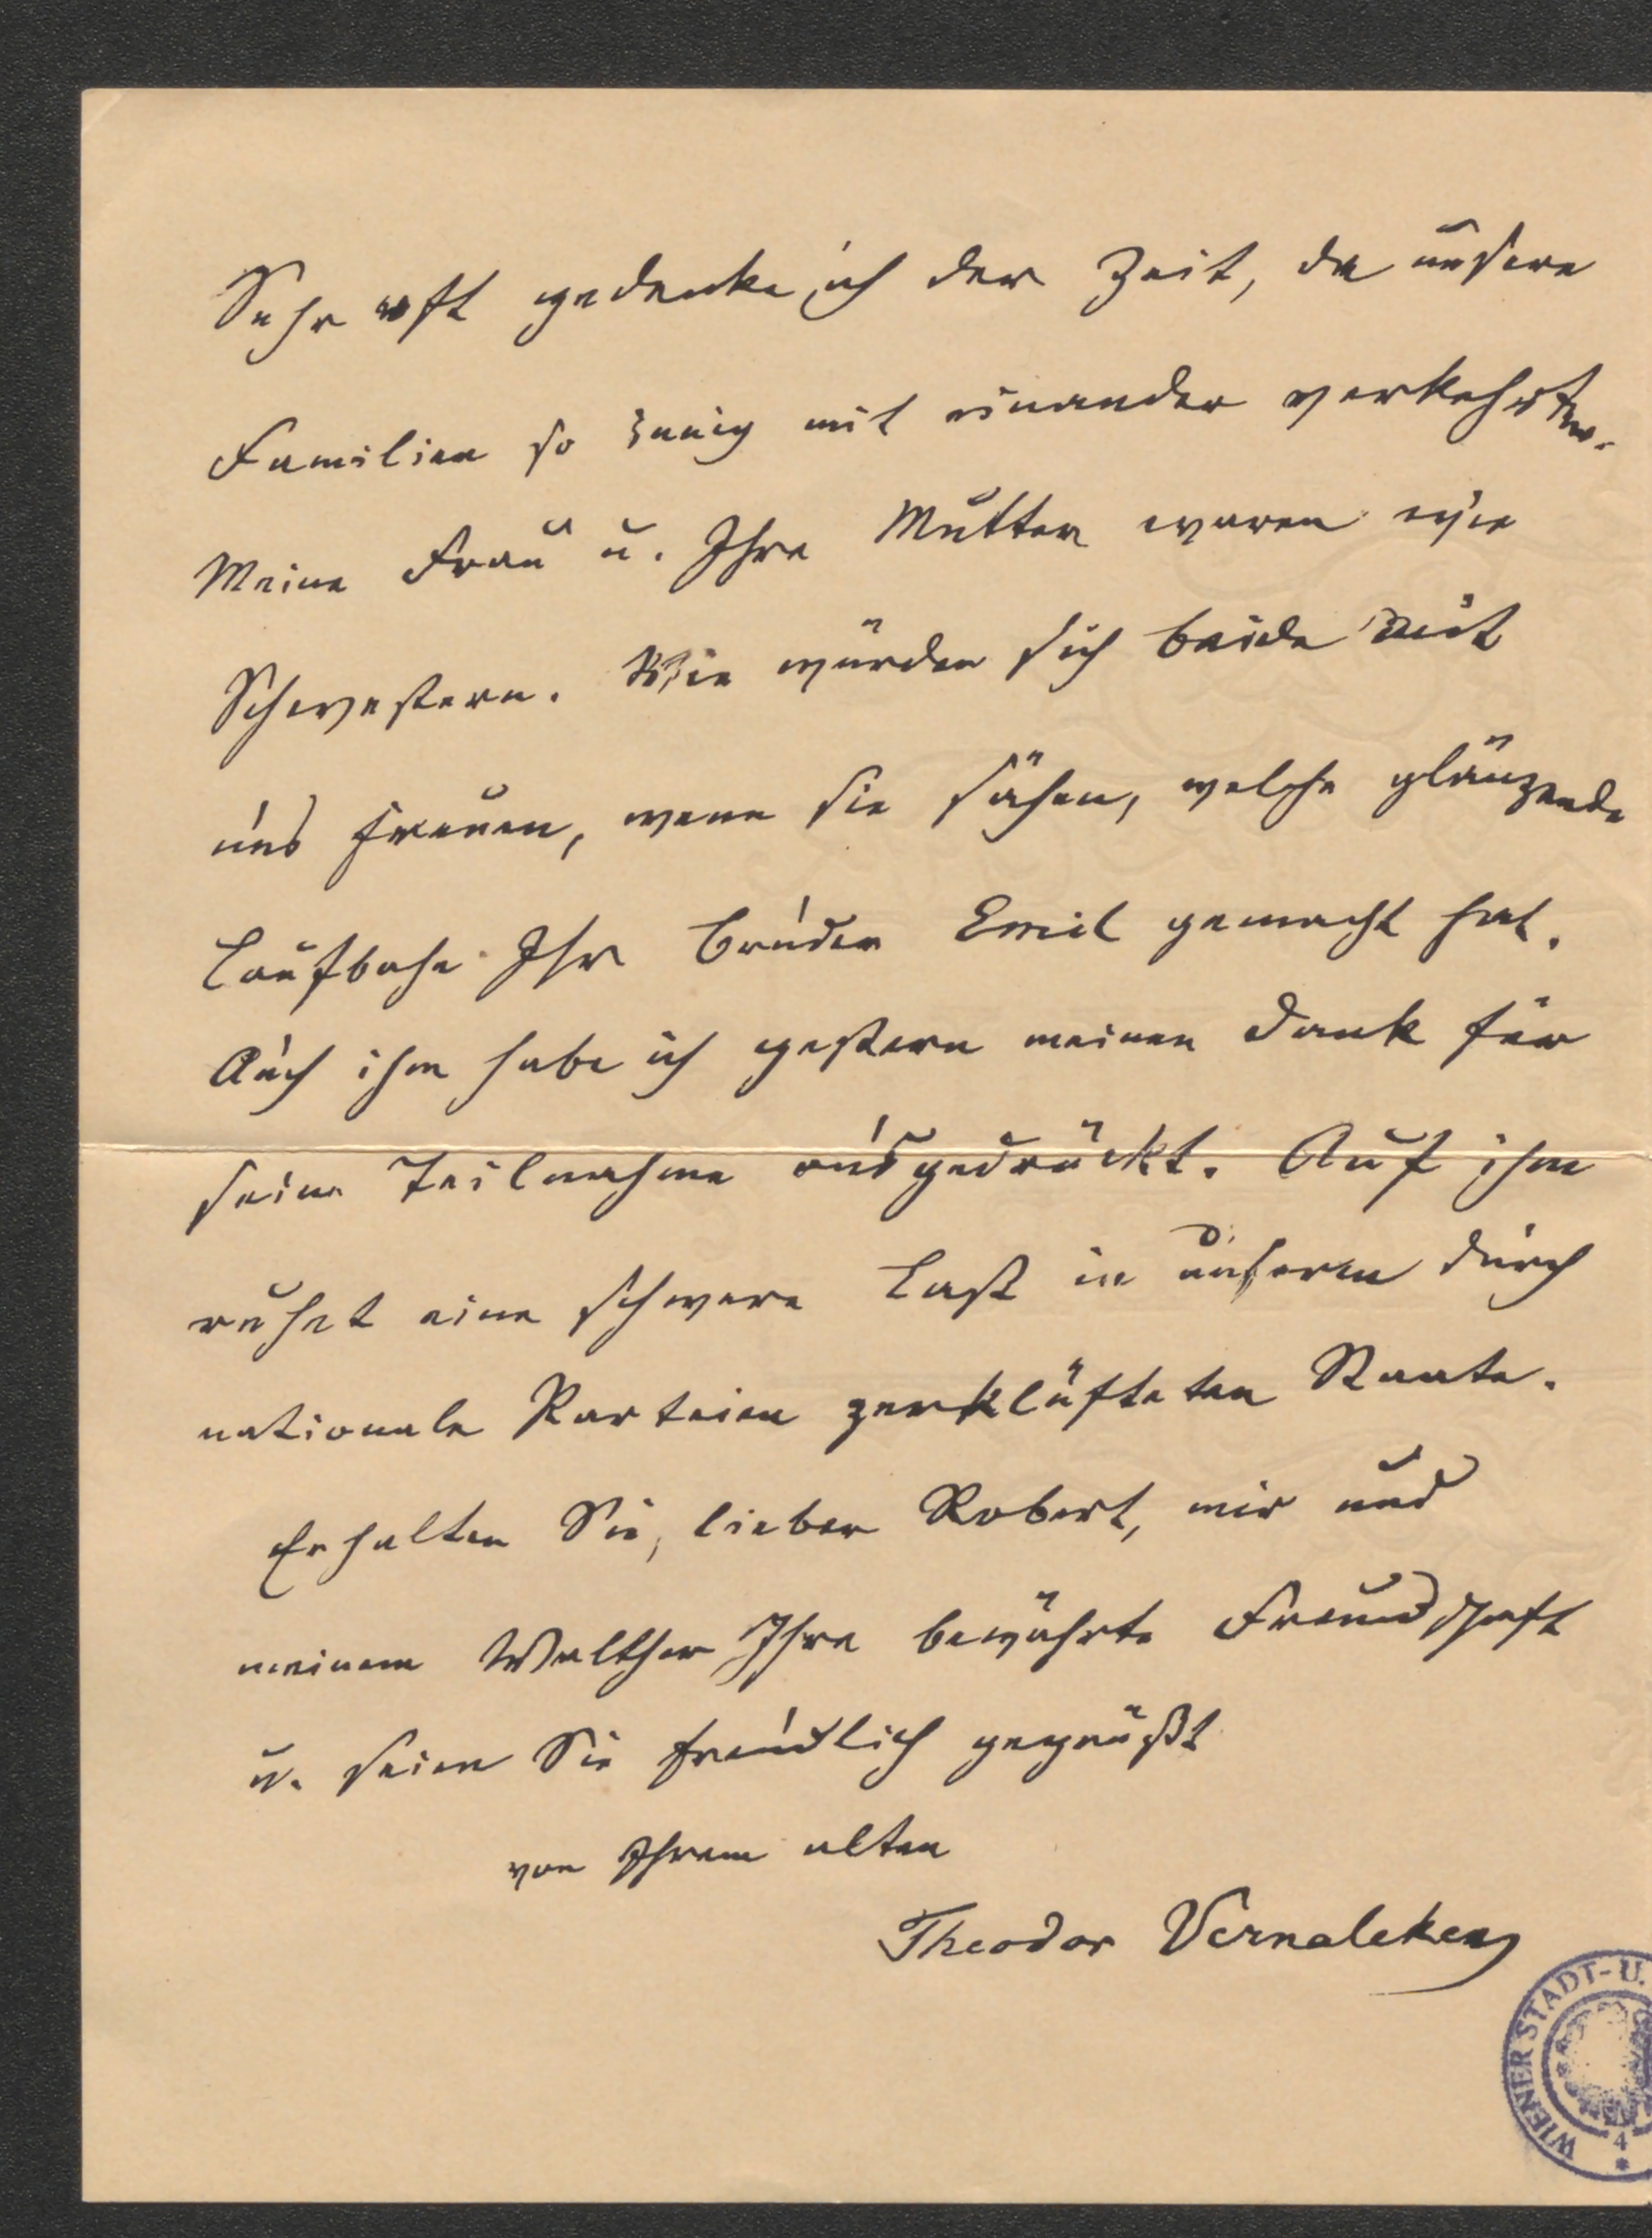 Sehr oft gedenke ich der Zeit, da unsere
Familien so innig mit einander verkehrten.
Meine Frau u. Ihre Mutter waren wie
Schwestern. Wie würden sich beide mit
uns freuen, wenn sie sähen, welche glänzende
Laufbahn Ihr Bruder Emil gemacht hat.
Auch ihm habe ich gestern meinen Dank für
seine Teilnahme ausgedrückt. Auf ihm
ruhet eine schwere Last in unserem durch
nationale Parteien zerklüfteten Staate.
Erhalten Sie, lieber Robert, mir und
meinem Walther Ihre bewährte Freundschaft
u. seien Sie freundlich gegrüßt
von Ihrem alten
Theodor Vernaleken
WIENER STADT-U.
4